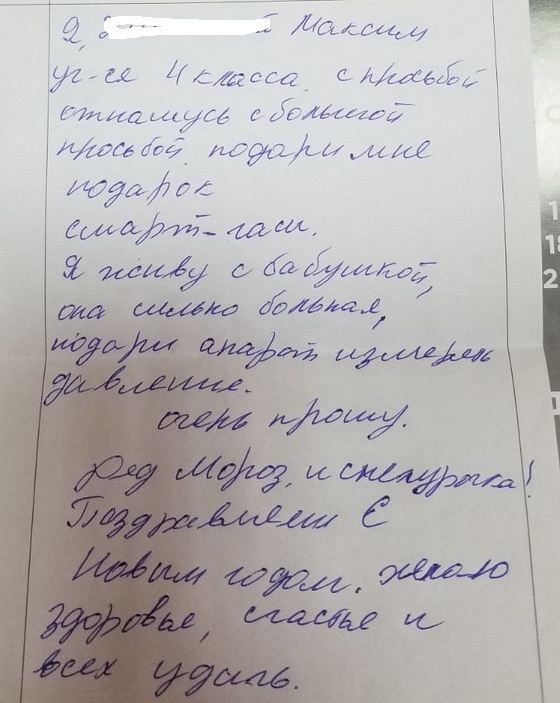 Я, Максим
уг-ся 4 класса. с просьбой
отнашусь с большой
просьбой подари мне
подарок
смарт-гасы.
Я живу с бабушкой,
она сильно больная,
подари апарат измерять
давление.
очень прошу.
Дед Мороз, и снегурочка!
Поздравляем С
Новым годом. желаю
здоровье, счастье и
всех удачь.